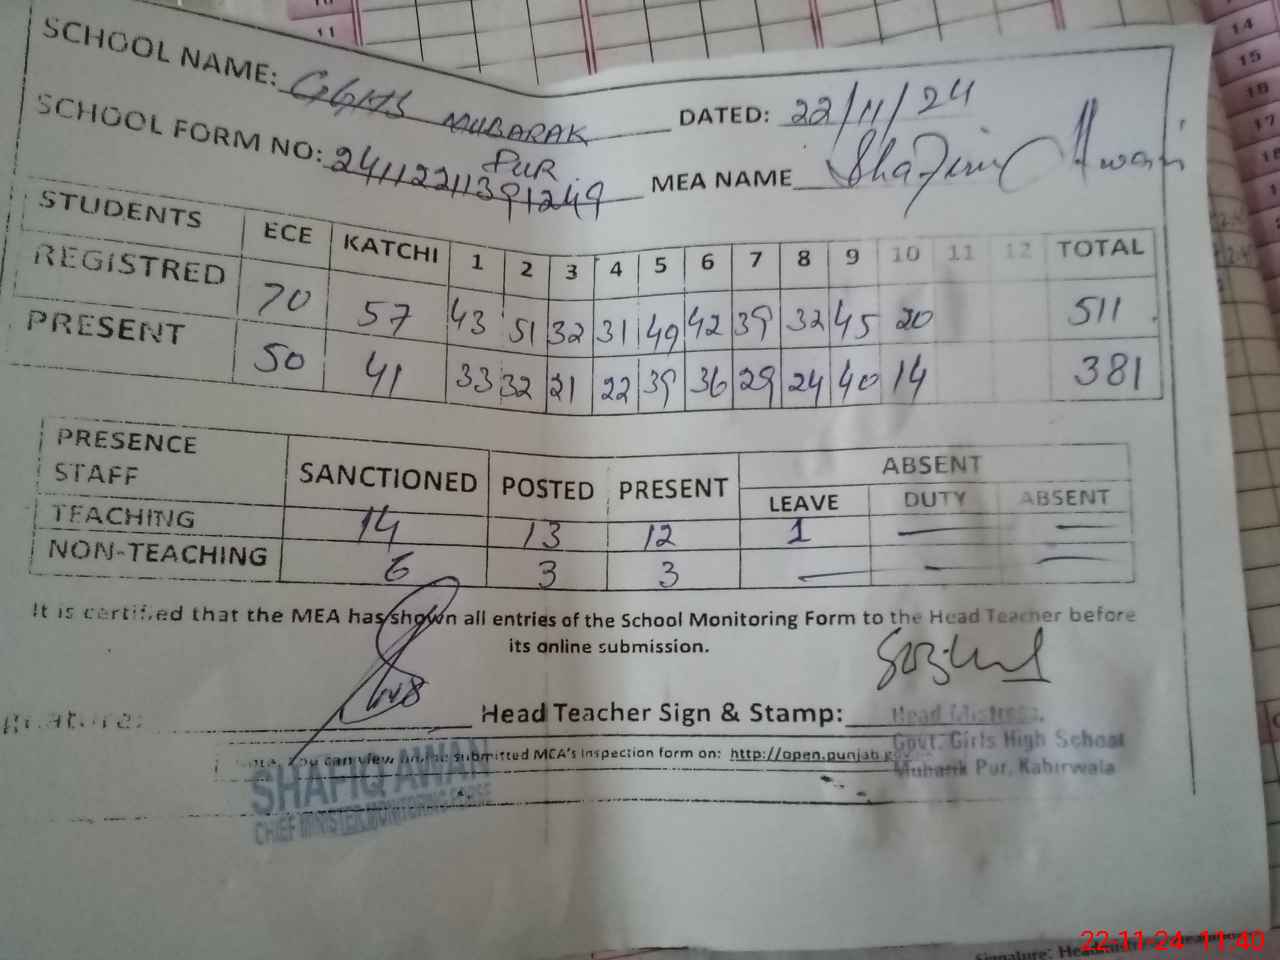 11
14
15
16
17
SCHOOL NAME: GGHS MUBARAK PUR
DATED: 22/11/24
SCHOOL FORM NO: 2411221391249
MEA NAME Shafiq Awan
STUDENTS ECE KATCHI 1 2 3 4 5 6 7 8 9 10 11 12 TOTAL
REGISTRED 70 57 43 51 32 31 49 42 39 32 45 20 511
PRESENT 50 41 33 32 21 22 39 36 29 24 40 14 381
PRESENCE STAFF SANCTIONED POSTED PRESENT ABSENT
LEAVE DUTY ABSENT
TEACHING 14 13 12 1 — —
NON-TEACHING 6 3 3 — — —
It is certified that the MEA has shown all entries of the School Monitoring Form to the Head Teacher before
its online submission.
Head Teacher Sign & Stamp:
Head Mistress,
Govt. Girls High School
Mubarik Pur, Kabirwala
You can view online submitted MEA's inspection form on: http://open.punjab
SHAFIQ AWAN
CHIEF MINISTER MONITORING FORCE
22-11-24 11:40